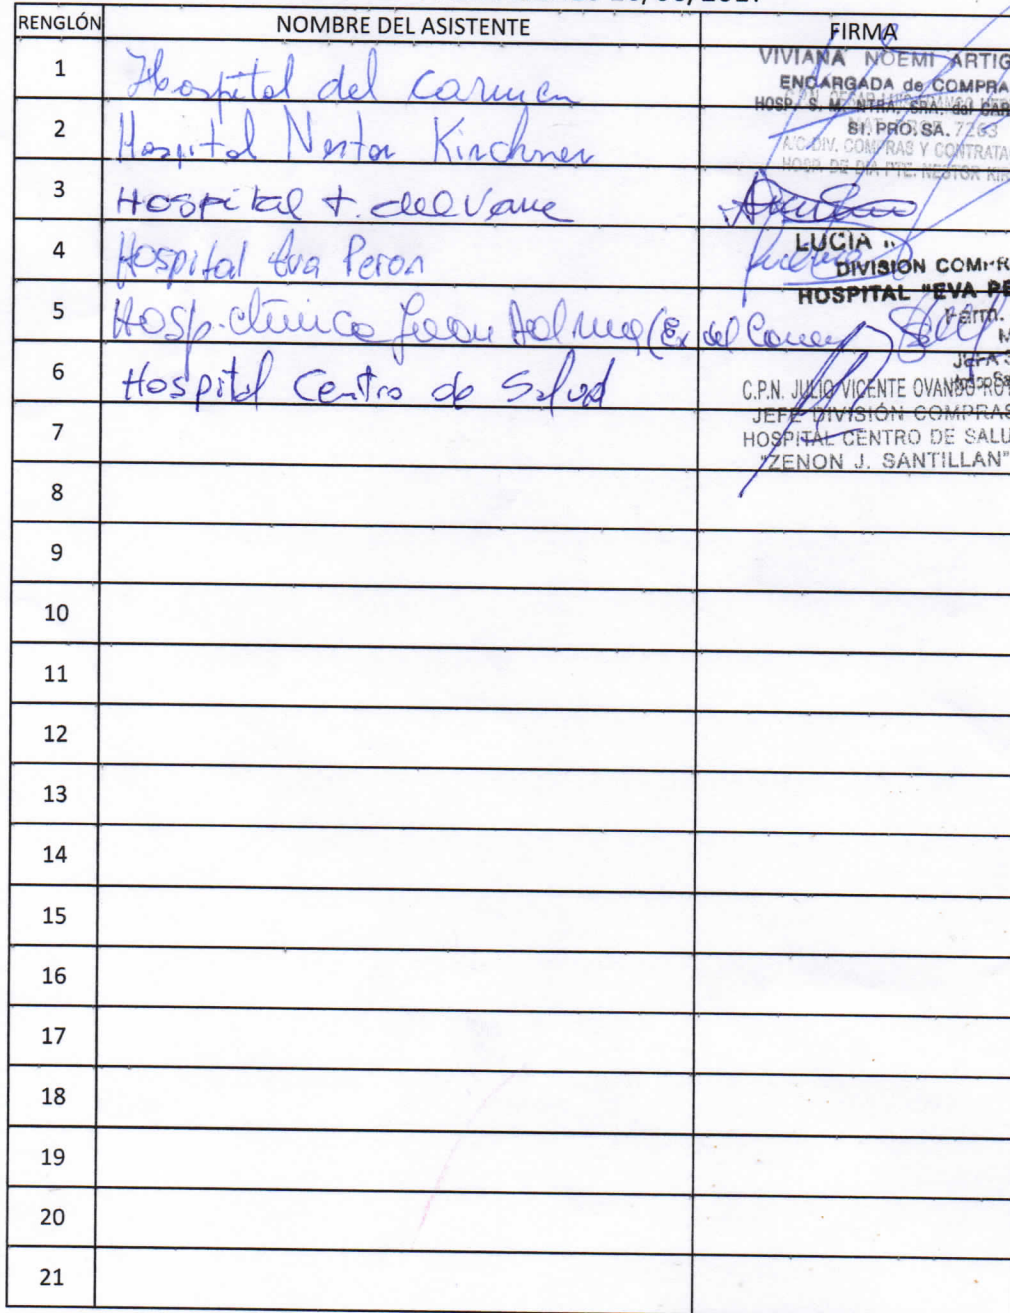 RENGLÓN NOMBRE DEL ASISTENTE FIRMA
1 Hospital del Carmen
VIVIANA NOEMI ARTIG
ENCARGADA de COMPRA
HOSP. S. M. NTRA. SRA. del CAR
SI. PRO. SA. 7263
2 Hospital Nestor Kirchner
DIV. COMPRAS Y CONTRATA
HOSP. DE DIA PTE. NESTOR KIR
3 Hospital
4 Hospital Eva Peron
LUCIA
DIVISION COMPR
HOSPITAL "EVA PE
5 Hosp. clínica (Ex del Carmen)
Farm.
M
Jefa S
6 Hospital Centro de Salud
C.P.N. JULIO VICENTE OVANDO
JEFE DIVISIÓN COMPRAS
7
HOSPITAL CENTRO DE SALU
"ZENON J. SANTILLAN"
8
9
10
11
12
13
14
15
16
17
18
19
20
21